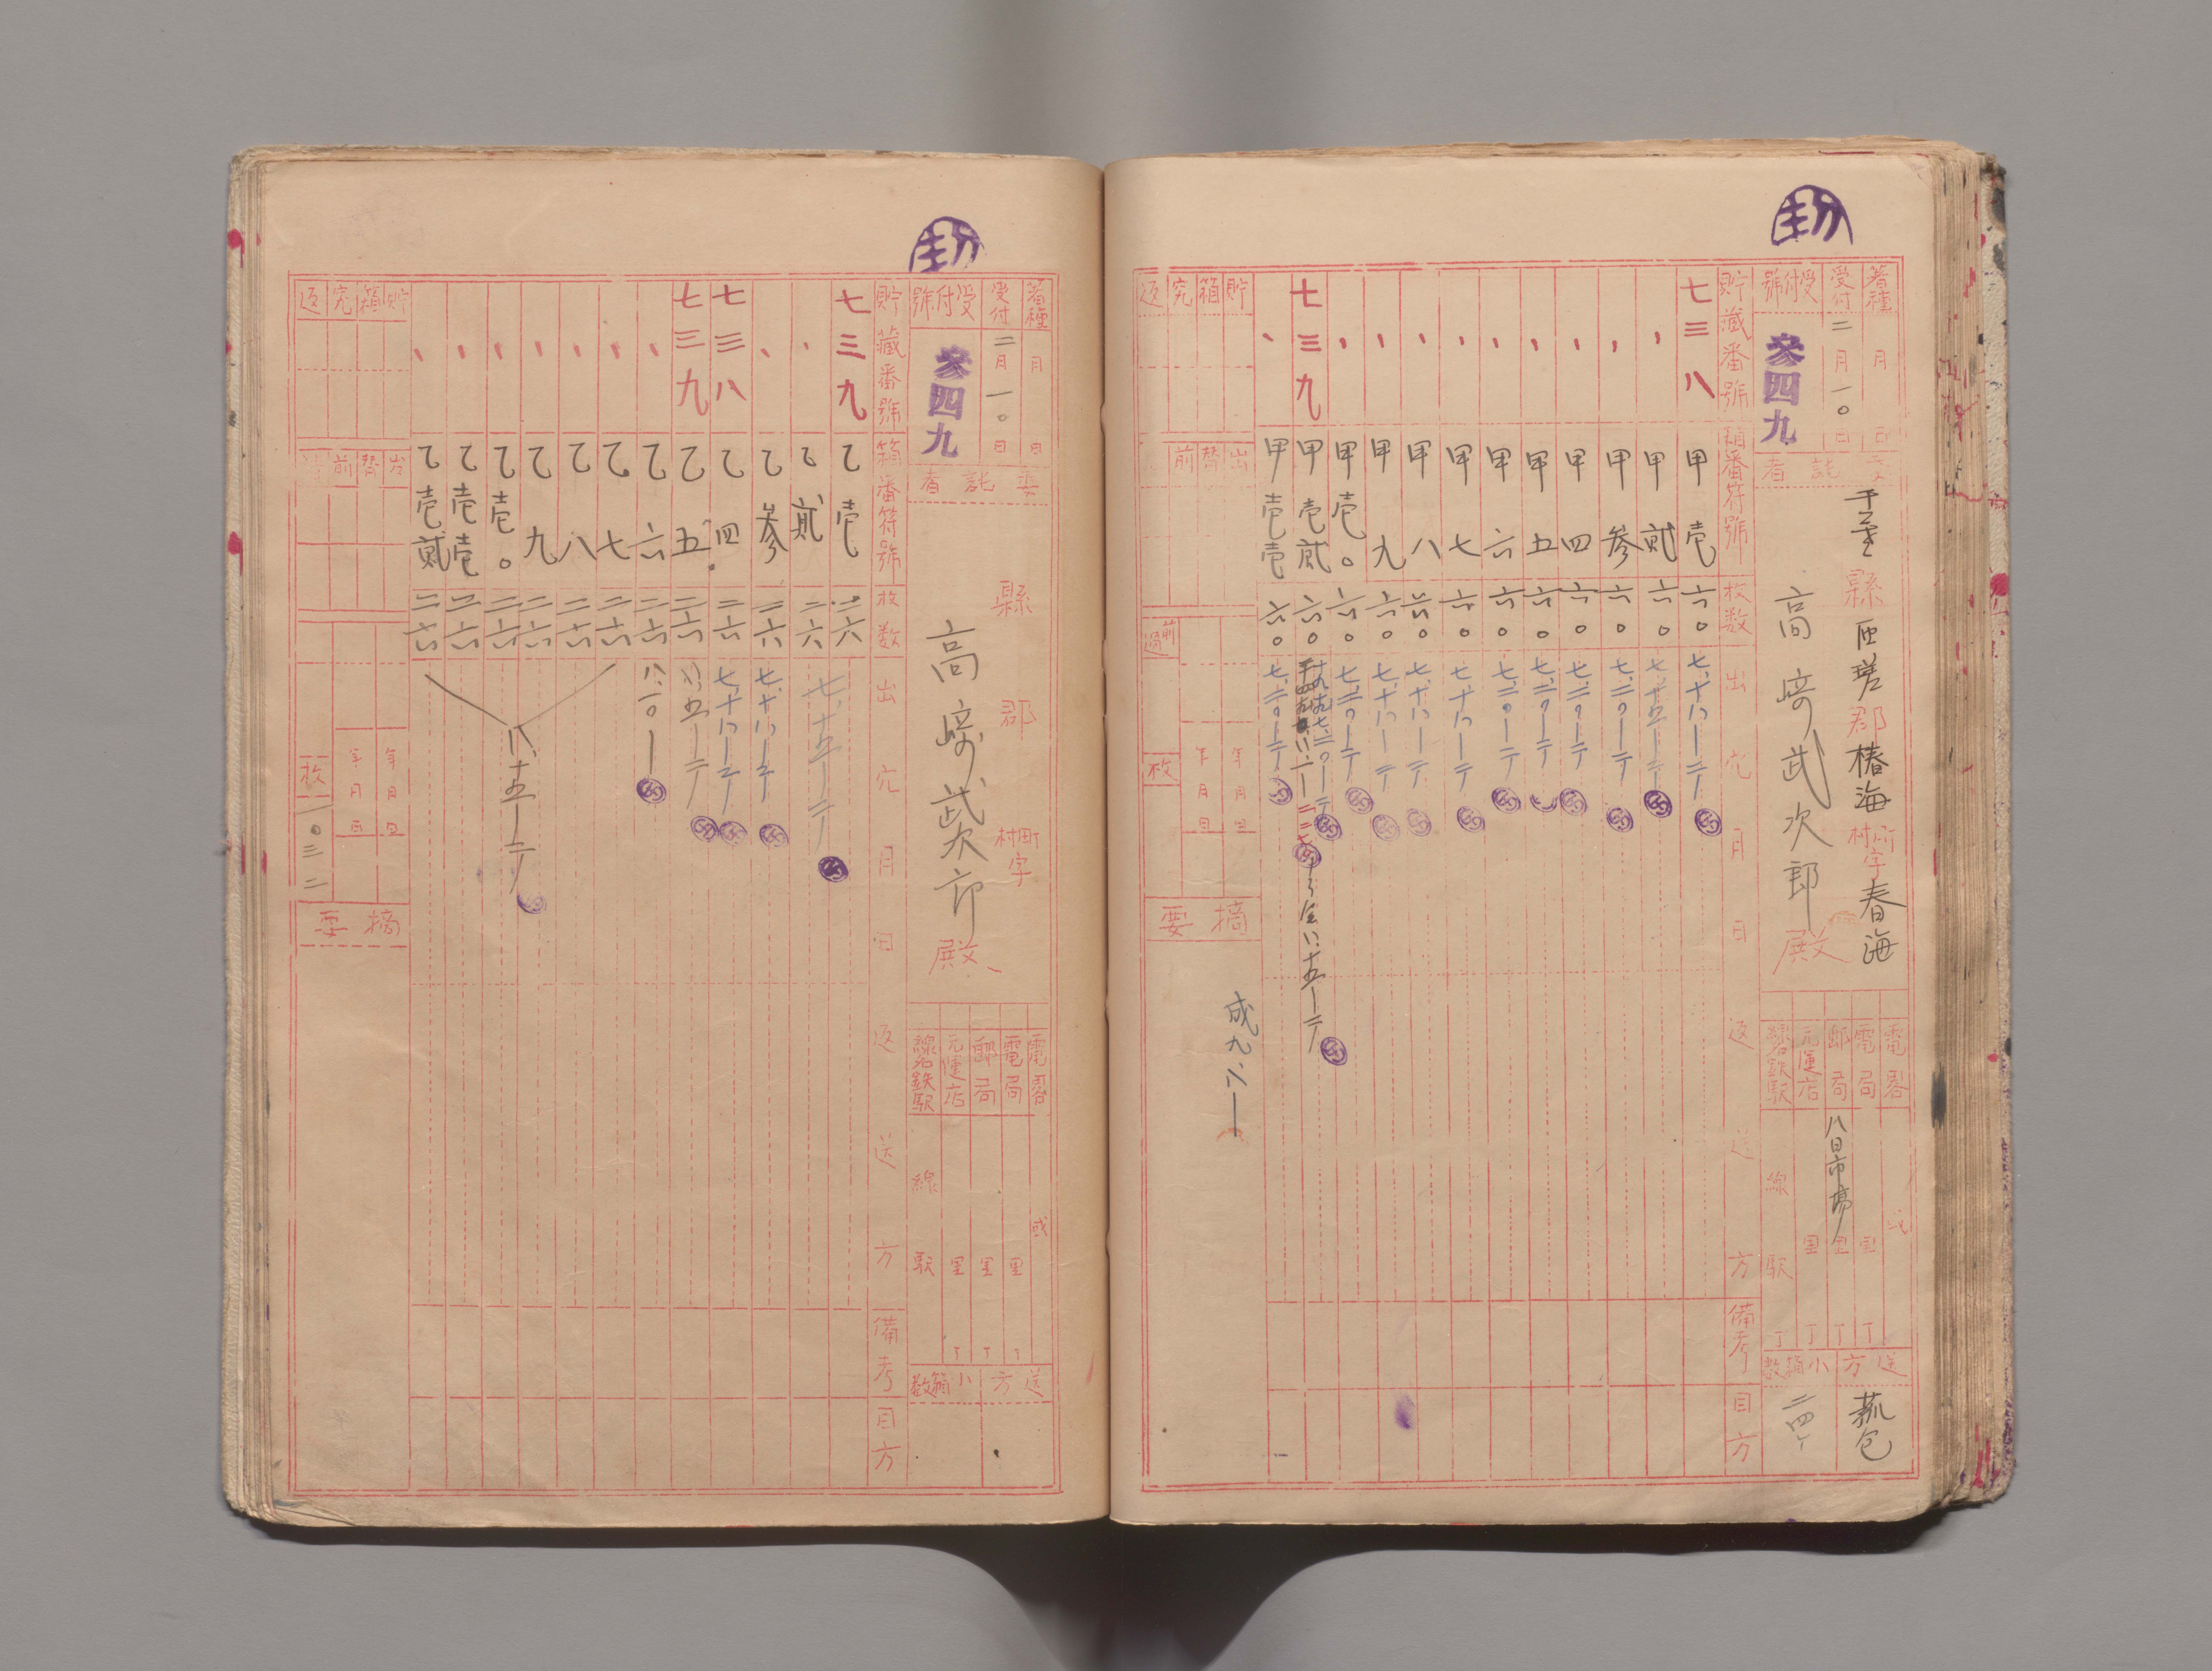 着種 月 日
受付 二月一〇日
受付號 参四九
委託者
千葉縣匝瑳郡椿海村字春海
高﨑武次郎殿
電略 或
電局 里 丁
郵局 八日市場 里 丁
元運店 里 丁
線名鉄駅 線 駅 丁
送方 菰包
小箱数 二四
貯藏番號 箱番符號 枚数 出穴月日 返送方 備考 目方
七三八 甲壱 六〇 七、十八
〃 甲貮 六〇 七、十五
〃 甲参 六〇 七、二〇
〃 甲四 六〇 七、二〇
〃 甲五 六〇 七、二〇
〃 甲六 六〇 七、二〇
〃 甲七 六〇 七、十八
〃 甲八 六〇 七、十八
〃 甲九 六〇 七、十八
〃 甲壱〇 六〇 七、二〇
七三九 甲壱貮 六〇
〃 甲壱壱 六〇 七、二〇
貯箱穴返
出替前
前過
年 月 日
年 月 日
枚
摘要
着種 月 日
受付 二月一〇日
受付號 参四九
委託者
縣 郡 町村字
高﨑武次郎殿
電略 或
電局 里 丁
郵局 里 丁
元運店 里 丁
線名鉄駅 線 駅
送方
小箱数
貯藏番號 箱番符號 枚数 出穴月日 返送方 備考 目方
七三九 乙壱 二六
〃 乙貮 二六 七、十五
〃 乙参 二六 七、十八
七三八 乙四 二六 七、十八
七三九 乙五 二六 八、五
〃 乙六 二六 八、一〇
〃 乙七 二六
〃 乙八 二六
〃 乙九 二六 八、十五
〃 乙壱〇 二六
〃 乙壱壱 二六
〃 乙壱貮 二六
貯箱穴返
出替前
年 月 日
年 月 日
枚 一〇三二
摘要